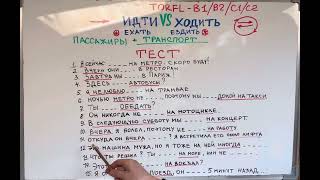 TORFL - B1/B2/C1/C2
ИДТИ VS ХОДИТЬ
ЕХАТЬ ЕЗДИТЬ
ПАССАЖИРЫ + ТРАНСПОРТ
ТЕСТ
1. Я СЕЙЧАС НА МЕТРО. СКОРО БУДУ!
2. ВЧЕРА ОНИ В РЕСТОРАН
3. ЗАВТРА МЫ В ПАРИЖ
4. ЗДЕСЬ АВТОБУСЫ?
5. Я НЕ ЛЮБЛЮ НА ТРАМВАЕ
6. НОЧЬЮ МЕТРО НЕ ПОЭТОМУ МЫ ДОМОЙ НА ТАКСИ
7. ТЫ ОБЕДАТЬ?
8. ОН НИКОГДА НЕ НА МОТОЦИКЛЕ.
9. В СЛЕДУЮЩУЮ СУББОТУ МЫ НА КОНЦЕРТ.
10. ВЧЕРА Я БОЛЕЛ, ПОЭТОМУ НЕ НА РАБОТУ
11. ОТКУДА ОН ВЧЕРА Я ВСТРЕТИЛ ЕГО ОКОЛО
12. МАШИНА МУЖА, НО Я ТОЖЕ НА НЕЙ ИНОГДА
13. ЧТО ТЫ РЕШИЛ? ТЫ НА МОРЕ, ИЛИ НЕ
14. НА ВОКЗАЛ?
15. Я ПОЕЗД, ОН 5 МИНУТ НАЗАД